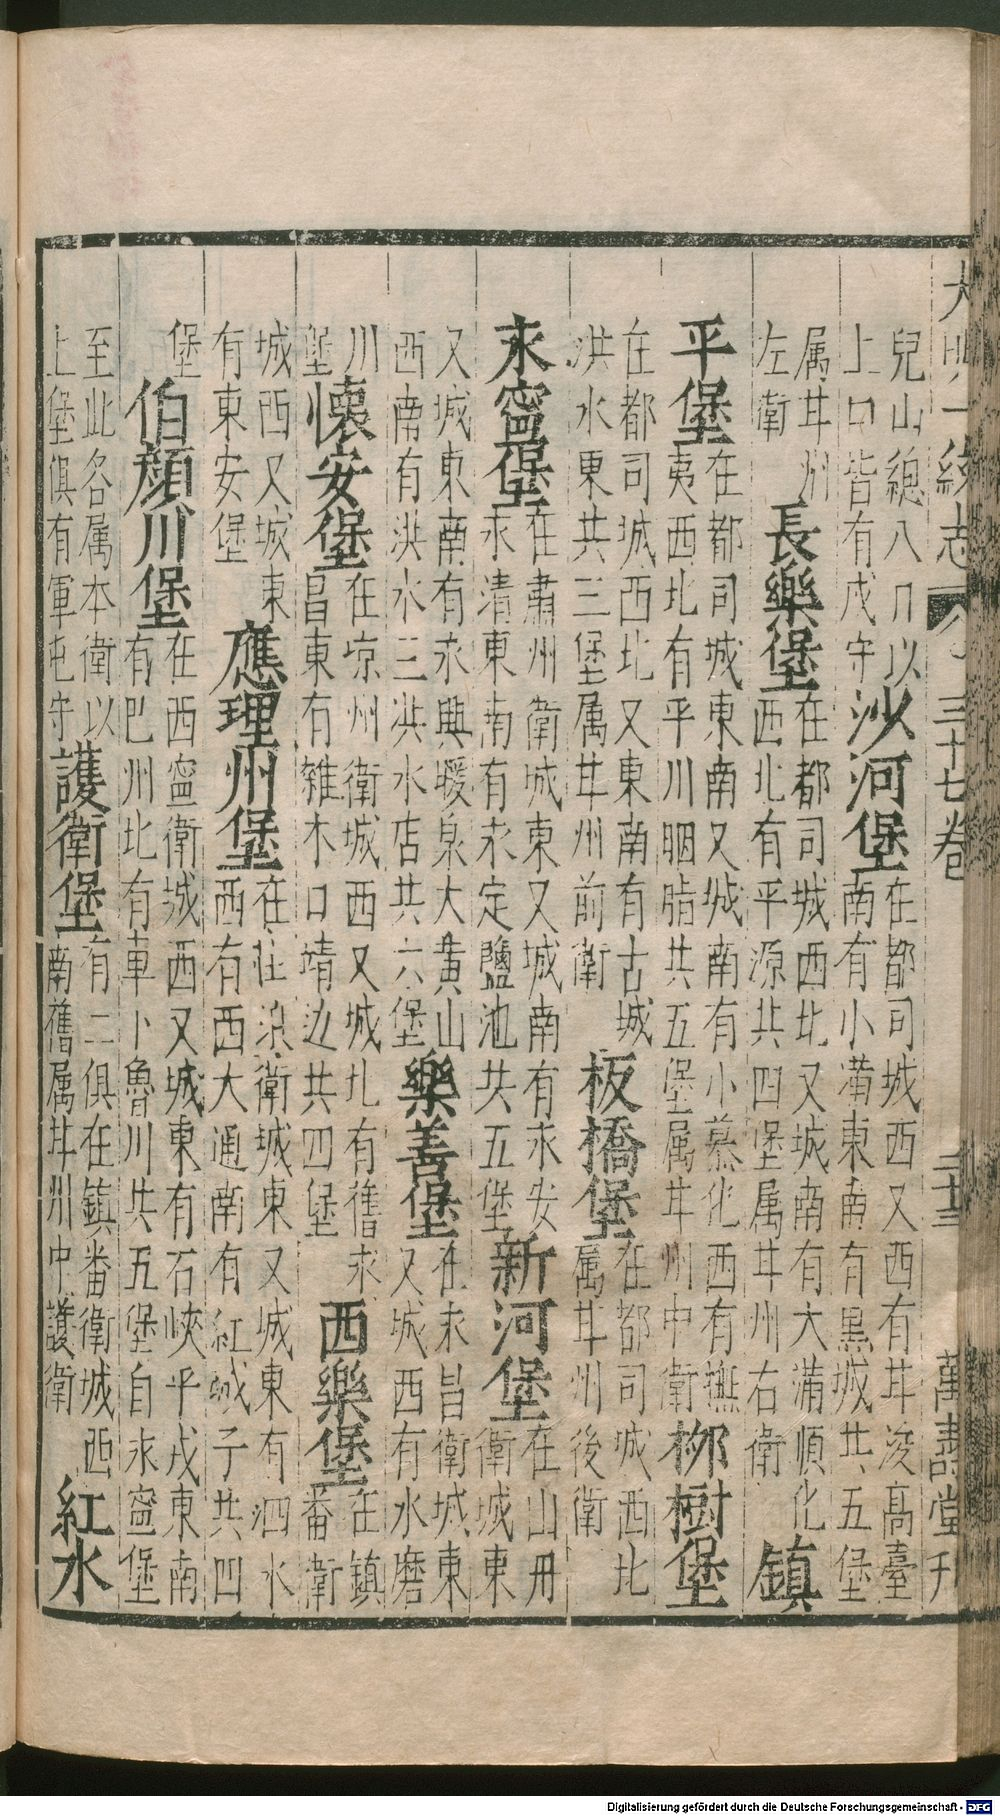 大明一統志 三十七卷 三十三 萬壽堂刊
兒山總八口以
上口皆有戍守
沙河堡
在都司城西又西有甘浚高臺
南有小滿東南有黑城共五堡
属甘州
左衛
長樂堡
在都司城西北又城南有大滿順化
西北有平源共四堡属甘州右衛
鎮
平堡
在都司城東南又城南有小慕化西有撫
夷西北有平川胭脂共五堡属甘州中衛
柳樹堡
在都司城西北又東南有古城
洪水東共三堡属甘州前衛
板橋堡
在都司城西北
属甘州後衛
永寧堡
在肅州衛城東又城南有永安
永清東南有永定鹽池共五堡
新河堡
在山丹
衛城東
又城東南有永興暖泉大黄山
西南有洪水三洪水店共六堡
樂善堡
在永昌衛城東
又城西有水磨
川
堡
懷安堡
在凉州衛城西又城北有舊永
昌東有雜木口靖边共四堡
西樂堡
在鎮
番衛
城西又城東
有東安堡
應理州堡
在莊浪衛城東又城東有泗水
西有西大通南有紅城子共四
堡
伯顔川堡
在西寧衛城西又城東有石峽平戎東南
有巴州北有車卜魯川共五堡自永寧堡
至此各属本衛以
上堡俱有軍屯守
護衛堡
有二俱在鎮番衛城西
南舊属甘州中護衛
紅水
Digitalisierung gefördert durch die Deutsche Forschungsgemeinschaft - DFG